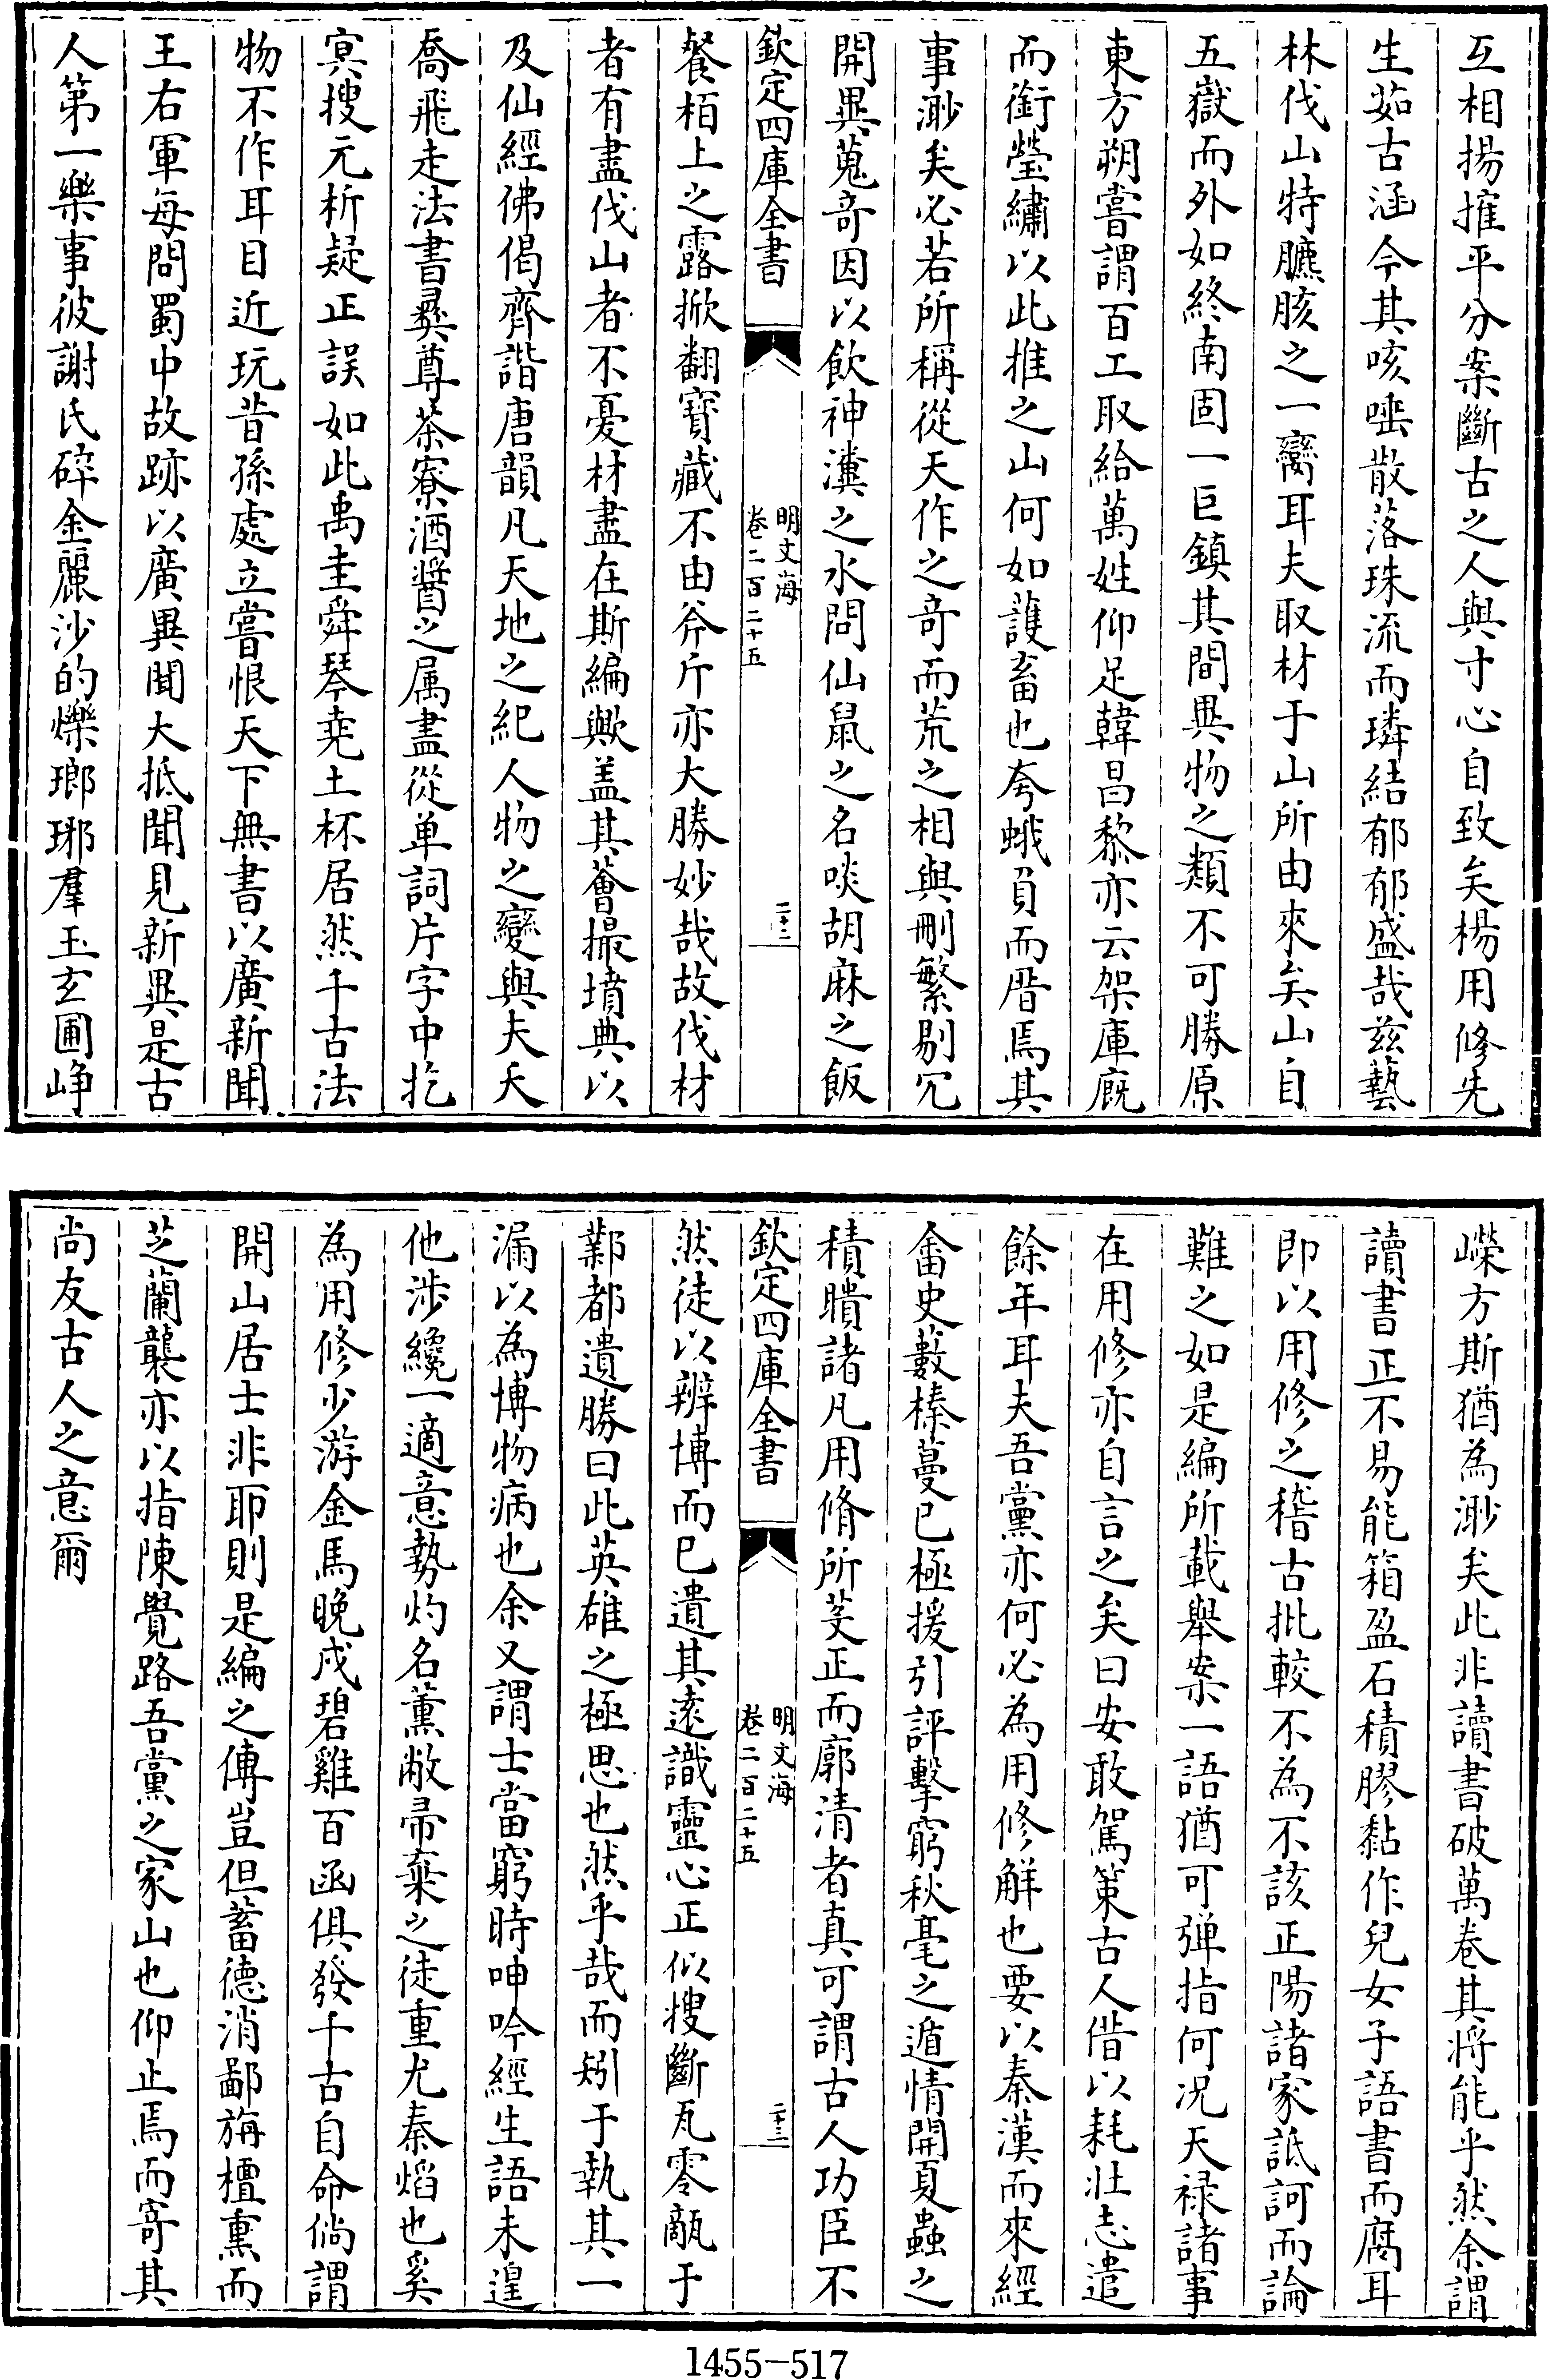 互相揚搉平分案斷古之人與寸心自致矣楊用修先
生茹古涵今其咳唾散落珠流而璘結郁郁盛哉兹藝
林伐山特臕胲之一臠耳夫取材于山所由來矣山自
五嶽而外如終南固一巨鎮其間異物之類不可勝原
東方朔嘗謂百工取給萬姓仰足韓昌黎亦云架庫廐
而銜瑩繡以此推之山何如䕶畜也夸蛾負而厝焉其
事渺矣必若所稱從天作之竒而荒之相與刪繁剔冗
開異蒐竒因以飲神瀵之水問仙䑕之名啖胡麻之飯
欽定四庫全書
明文海
卷二百二十五
二十二
餐栢上之露掀翻寶藏不由斧斤亦大勝妙哉故伐材
者有盡伐山者不憂材盡在斯編歟盖其薈撮墳典以
及仙經佛偈齊諧唐韻凡天地之紀人物之變與夫夭
喬飛走法書彛尊茶寮酒醬之属盡從单詞片字中扢
㝠搜元析疑正誤如此禹圭舜琴尭土杯居然千古法
物不作耳目近玩昔孫處立嘗恨天下無書以廣新聞
王右軍每問蜀中故跡以廣異聞大抵聞見新異是古
人第一樂事彼謝氏碎金麗沙的爍瑯琊羣玉玄圃崢
嶸方斯猶為渺矣此非讀書破萬卷其將能乎然余謂
讀書正不易能箱盈石積膠黏作兒女子語書而腐耳
即以用修之稽古批較不為不該正陽諸家詆訶而論
難之如是編所載舉案一語猶可弹指何况天禄諸事
在用修亦自言之矣曰安敢駕䇿古人偕以耗壯志遣
餘年耳夫吾黨亦何必為用修解也要以秦漢而來經
畬史藪榛蔓已極援引評擊窮秋毫之遁情開夏蟲之
積瞶諸凡用脩所芟正而廓清者真可謂古人功臣不
欽定四庫全書
明文海
卷二百二十五
二十三
然徒以辨博而已遺其逺識靈心正似搜斷瓦零甋于
鄴都遺勝曰此英雄之極思也然乎哉而矧于執其一
漏以為博物病也余又謂士當窮時呻吟經生語未遑
他涉纔一適意勢灼名薰敝帚棄之徒重尤秦熖也奚
為用修少游金馬晚戍碧雞百函俱發千古自命倘謂
開山居士非耶則是編之傳豈但蓄德消鄙旃檀熏而
芝蘭襲亦以指陳覺路吾黨之家山也仰止焉而寄其
尚友古人之意爾
1455-517